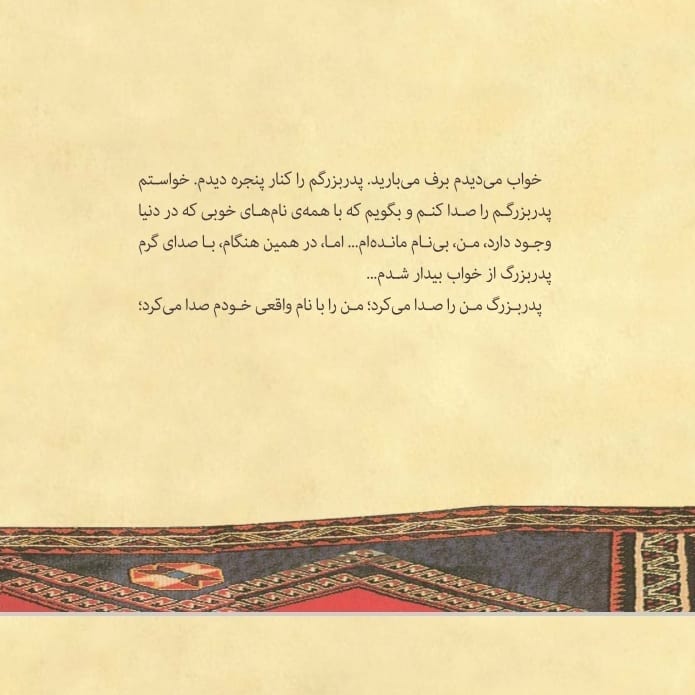 خواب می‌دیدم برف می‌بارید. پدربزرگم را کنار پنجره دیدم. خواستم
پدربزرگم را صدا کنم و بگویم که با همه‌ی نام‌های خوبی که در دنیا
وجود دارد، من، بی‌نام مانده‌ام... اما، در همین هنگام، با صدای گرم
پدربزرگ از خواب بیدار شدم...
پدربزرگ من را صدا می‌کرد؛ من را با نام واقعی خودم صدا می‌کرد؛